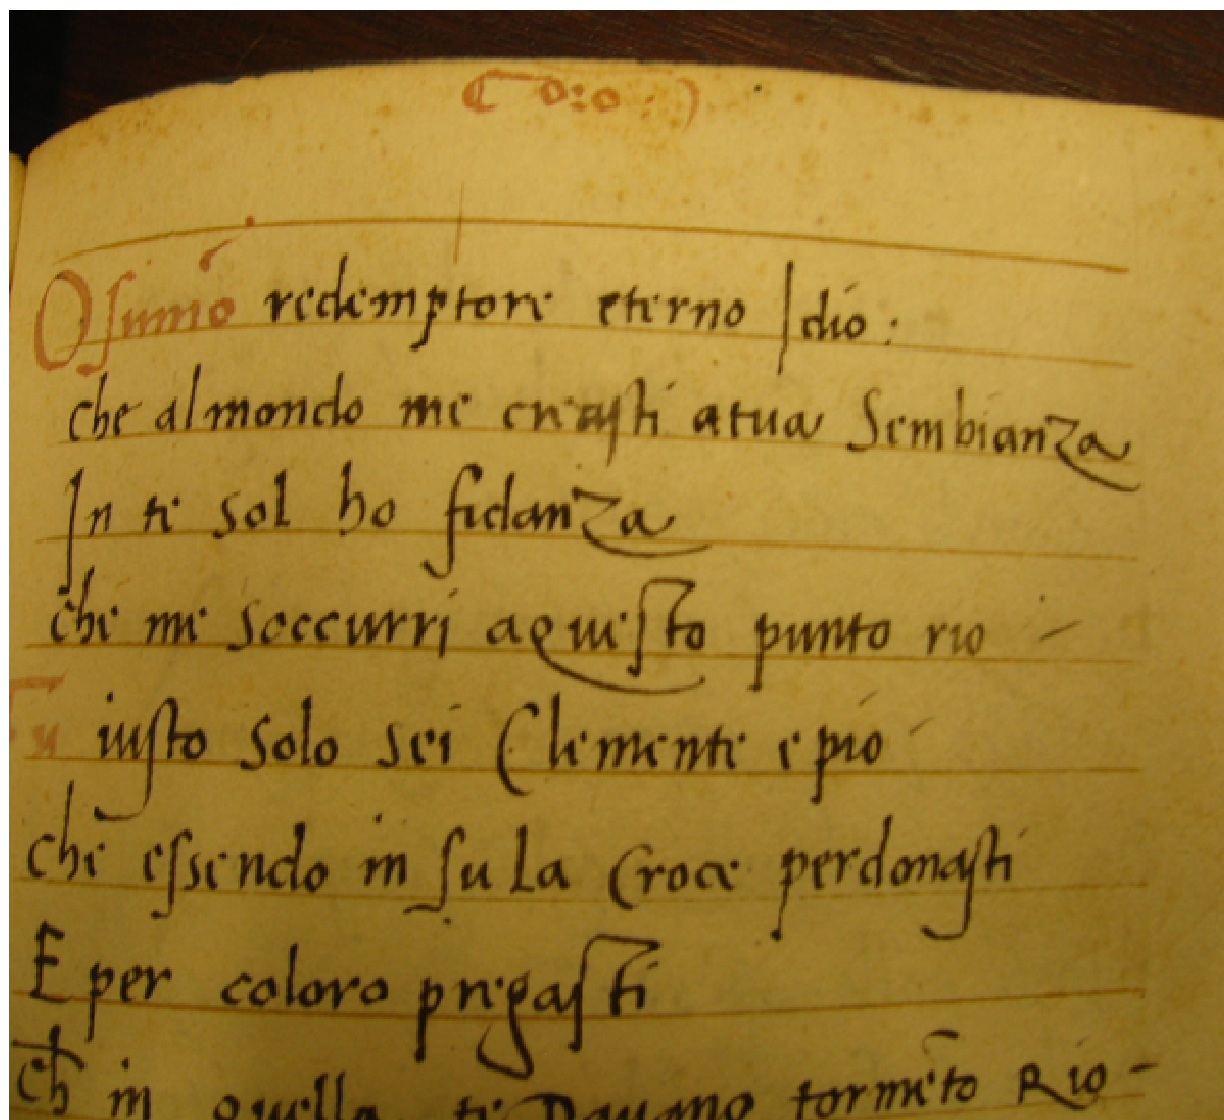 O sumō redemptore eterno Idio :
che al mondo me creasti a tua Sembianza
In te sol ho fidanza
che me soccurri a questo punto rio -
Tu iusto solo sei Clemente e pio
che essendo in su la Croce perdonasti
E per coloro pregasti
ch in quella te Davano tormēto Rio -